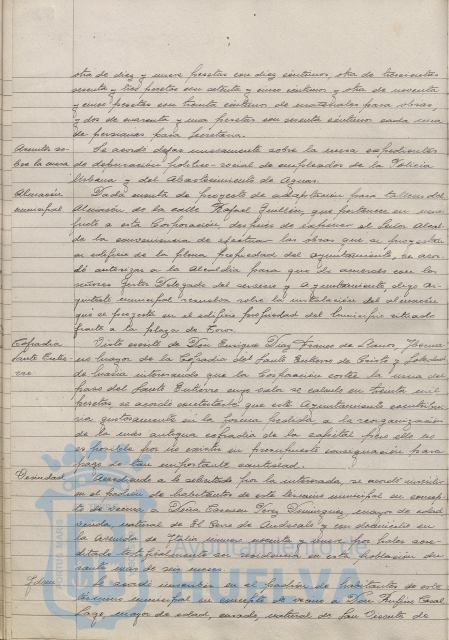 otra de diez y nueve pesetas con diez céntimos, otra de trescientas
sesenta y tres pesetas con setenta y cinco céntimos y otra de noventa
y cinco pesetas con treinta céntimos de materiales para obras,
y dos de cuarenta y una pesetas con sesenta céntimos cada una
de persianas para Secretaria.
Asuntos so-
bre la mesa
Se acordó dejar nuevamente sobre la mesa expedientes
de depuración político-social de empleados de la Policia
Urbana y del Abastecimiento de Aguas.
Almacén
municipal
Dada cuenta de proyecto de adaptación para talleres del
Almacén de la calle Rafael Guillén, que pertenece en
parte a esta Corporación, después de exponer el Señor Alcal-
de la conveniencia de efectuar las obras que se proyectan
en edificio de la plena propiedad del ayuntamiento, se acor-
dó autorizar a la Alcaldía para que de acuerdo con los
señores Gestor Delegado del servicio y Ayuntamiento, digo Ar-
quitecto municipal resuelva sobre la instalación del almacén
que se proyecta en el edificio propiedad del municipio situado
frente a la plaza de Toros.
Cofradia
Santo Entie-
rro
Visto escrito de Don Enrique Diaz Franco de Llanos, Herma-
no mayor de la Cofradia del Santo Entierro de Cristo y Soledad
de Maria interesando que la Corporación costee la urna del
paso del Santo Entierro cuyo valor se calcula en treinta mil
pesetas, se acordó contestarle que este Ayuntamiento contribui-
ria gustosamente en la forma pedida, a la reorganización
de la mas antigua cofradia de la capital pero ello no
es posible por no existir en presupuesto consignación para
pago de tan importante cantidad.
Vecindad
Accediendo a lo solicitado por la interesada, se acordó inscribir
en el padrón de habitantes de este término municipal en concep-
to de vecina a Doña Carmen Dominguez, mayor de edad
viuda, natural de El Cerro de Andévalo y con domicilio en
la Avenida de Italia número noventa y nueve por haber acre-
ditado testificalmente su residencia en esta población du-
rante mas de seis meses.
Idem
Se acordó inscribir en el padrón de habitantes de este
término municipal en concepto de vecino a Don Rufino Casal
mayor de edad, casado, natural de San Vicente de
Ayuntamiento de
HUELVA
PORTUS MARIS